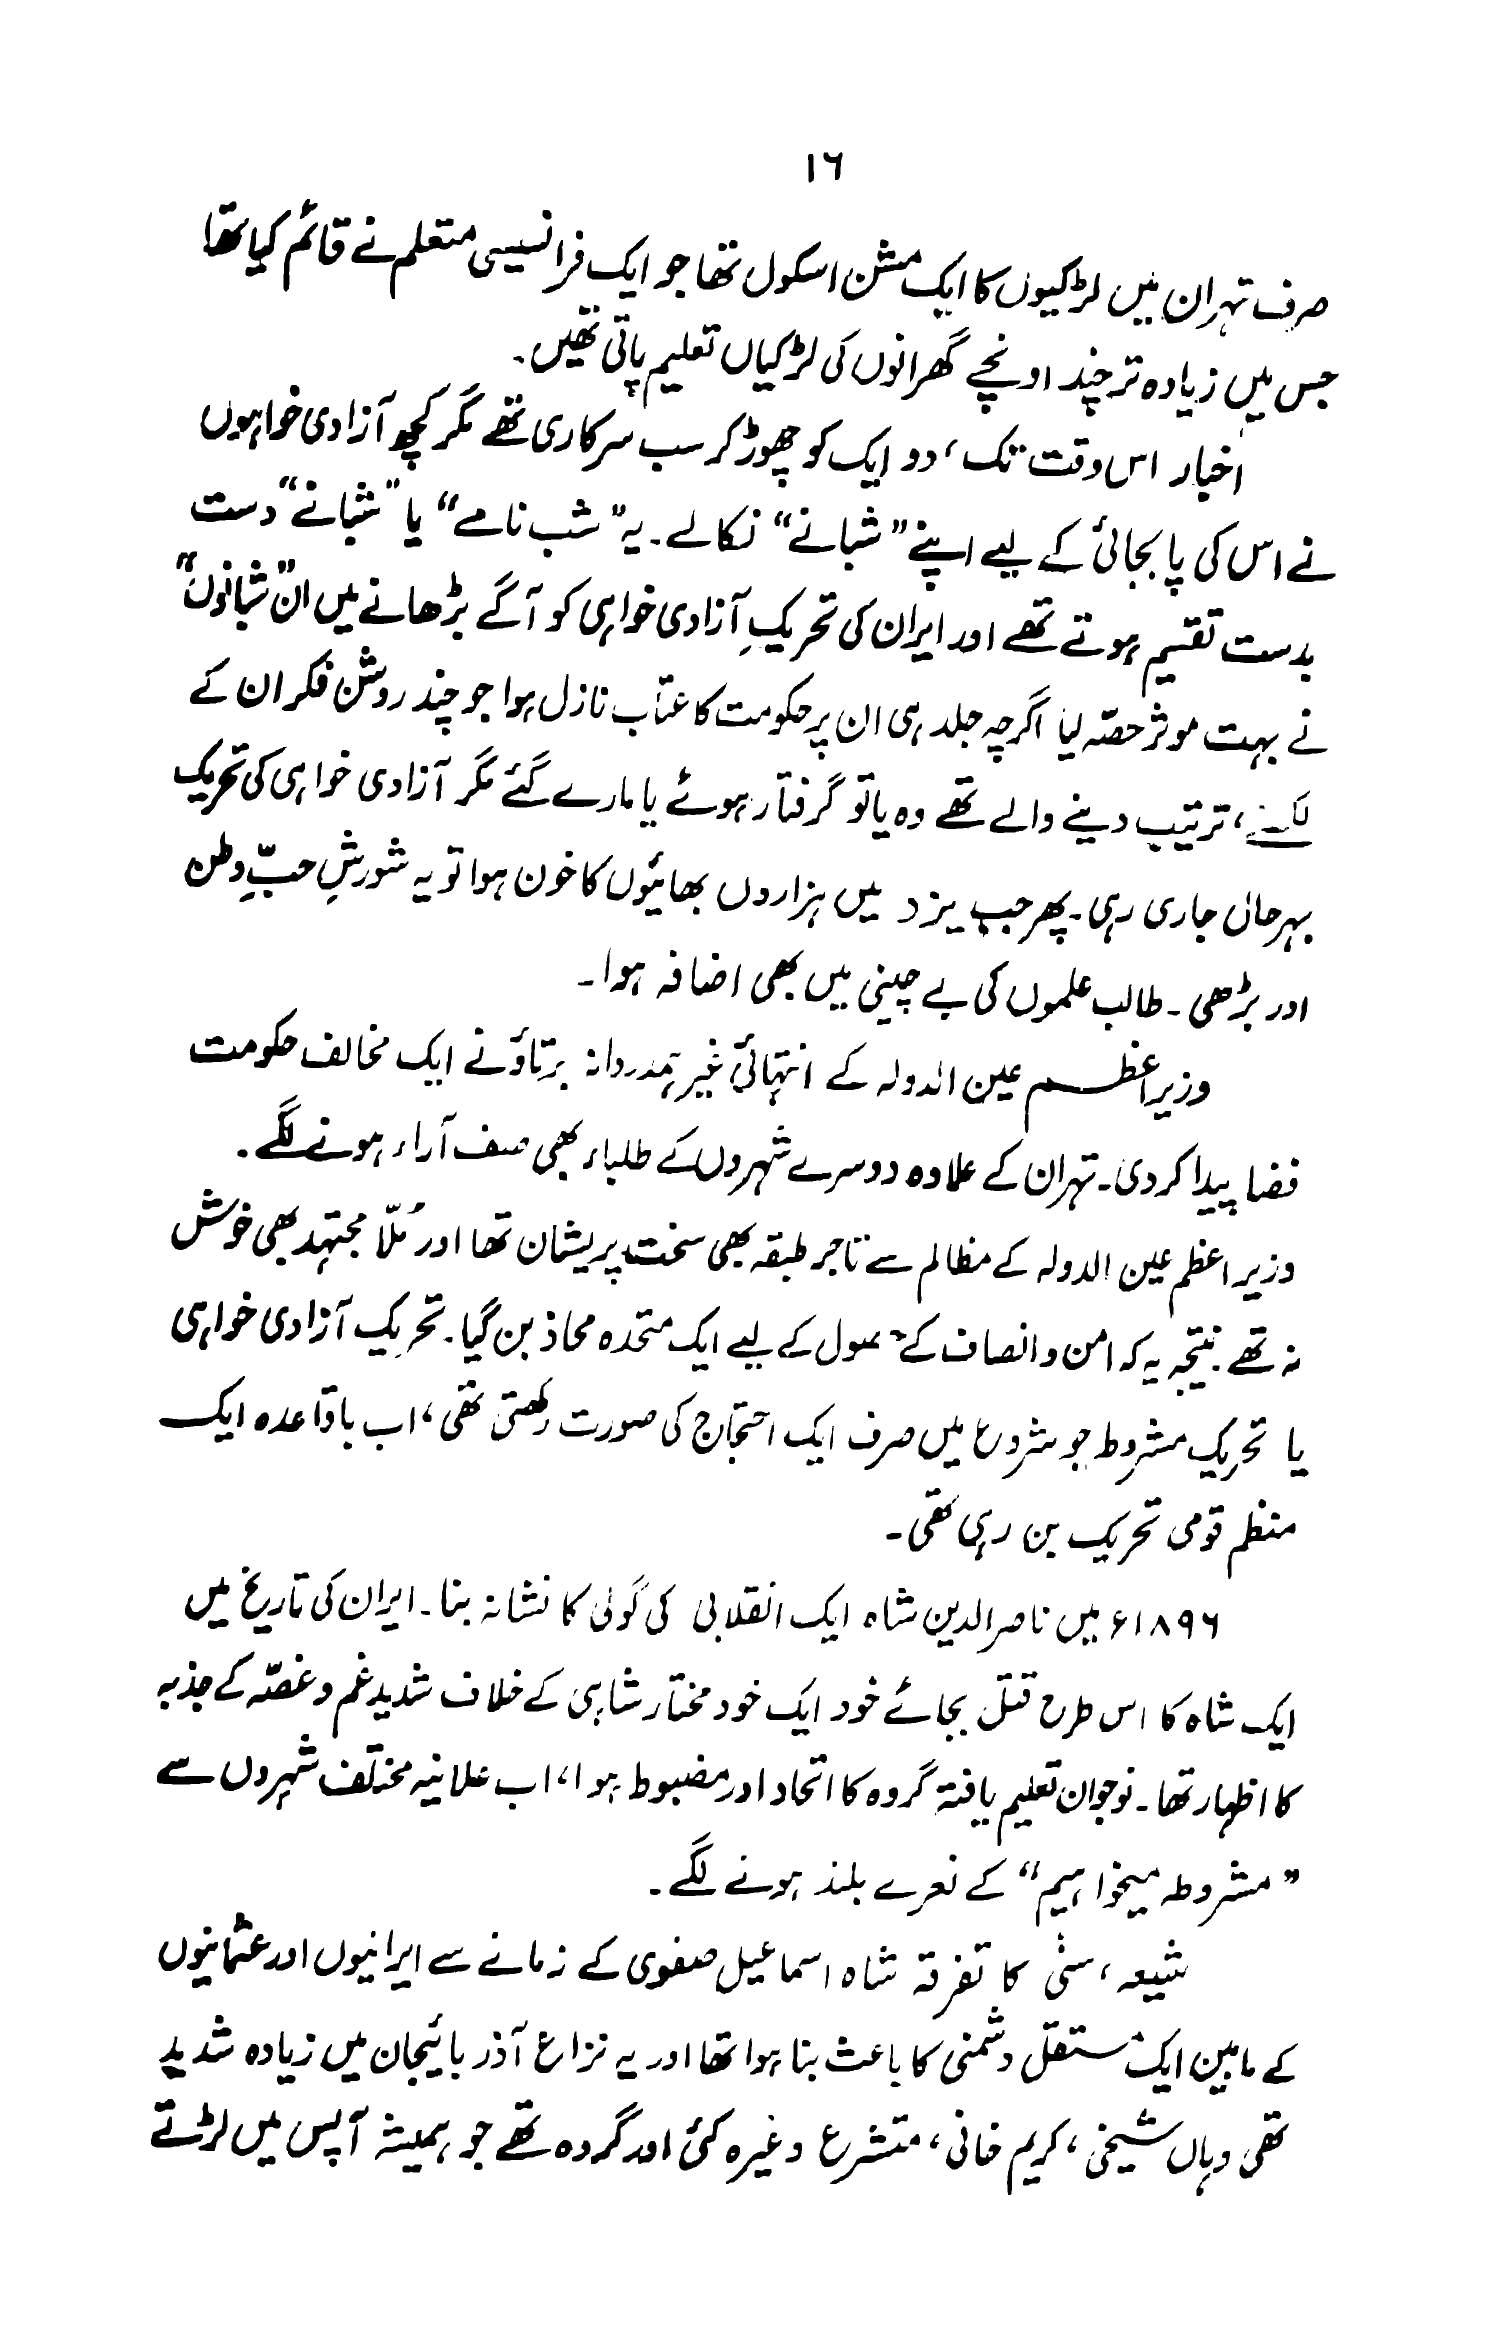 ۱۶
صرف تہران میں لڑکیوں کا ایک مشن اسکول تھا جو ایک فرانسیسی متعلم نے قائم کیا تھا
جس میں زیادہ تر چند اونچے گھرانوں کی لڑکیاں تعلیم پاتی تھیں۔
اخبار اس وقت تک، دو ایک کو چھوڑ کر سب سرکاری تھے مگر کچھ آزادی خواہوں
نے اس کی پابجائی کے لیے اپنے ”شبانے“ نکالے۔ یہ ”شب نامے“ یا ”شبانے“ دست
بدست تقسیم ہوتے تھے اور ایران کی تحریکِ آزادی خواہی کو آگے بڑھانے میں ان ”شبانوں“
نے بہت موثر حصّہ لیا اگرچہ جلد ہی ان پر حکومت کا عتاب نازل ہوا جو چند روشن فکر ان کے
لکھنے، ترتیب دینے والے تھے وہ یا تو گرفتار ہوئے یا مارے گئے مگر آزادی خواہی کی تحریک
بہرحال جاری رہی۔ پھر جب یزد میں ہزاروں بھائیوں کا خون ہوا تو یہ شورشِ حبِّ وطن
اور بڑھی۔ طالب علموں کی بے چینی میں بھی اضافہ ہوا۔
وزیر اعظم عین الدولہ کے انتہائی غیر ہمدردانہ برتاؤ نے ایک مخالف حکومت
فضا پیدا کر دی۔ تہران کے علاوہ دوسرے شہروں کے طلباء بھی صف آراء ہونے لگے۔
وزیر اعظم عین الدولہ کے مظالم سے تاجر طبقہ بھی سخت پریشان تھا اور مُلّا مجتہد بھی خوش
نہ تھے۔ نتیجہ یہ کہ امن و انصاف کے حصول کے لیے ایک متحدہ محاذ بن گیا۔ تحریک آزادی خواہی
یا تحریک مشروط جو شروع میں صرف ایک احتجاج کی صورت رکھتی تھی، اب باقاعدہ ایک
منظم قومی تحریک بن رہی تھی۔
۱۸۹۶ء میں ناصر الدین شاہ ایک انقلابی کی گولی کا نشانہ بنا۔ ایران کی تاریخ میں
ایک شاہ کا اس طرح قتل بجائے خود ایک خود مختار شاہی کے خلاف شدید غم و غصّہ کے جذبہ
کا اظہار تھا۔ نوجوان تعلیم یافتہ گروہ کا اتحاد اور مضبوط ہوا، اب علانیہ مختلف شہروں سے
”مشروطہ میخواہیم“ کے نعرے بلند ہونے لگے۔
شیعہ، سنّی کا تفرقہ شاہ اسماعیل صفوی کے زمانے سے ایرانیوں اور عثمانیوں
کے مابین ایک مستقل دشمنی کا باعث بنا ہوا تھا اور یہ نزاع آذر بائیجان میں زیادہ شدید
تھی وہاں شیخی، کریم خانی، متشرع وغیرہ کئی اور گروہ تھے جو ہمیشہ آپس میں لڑتے